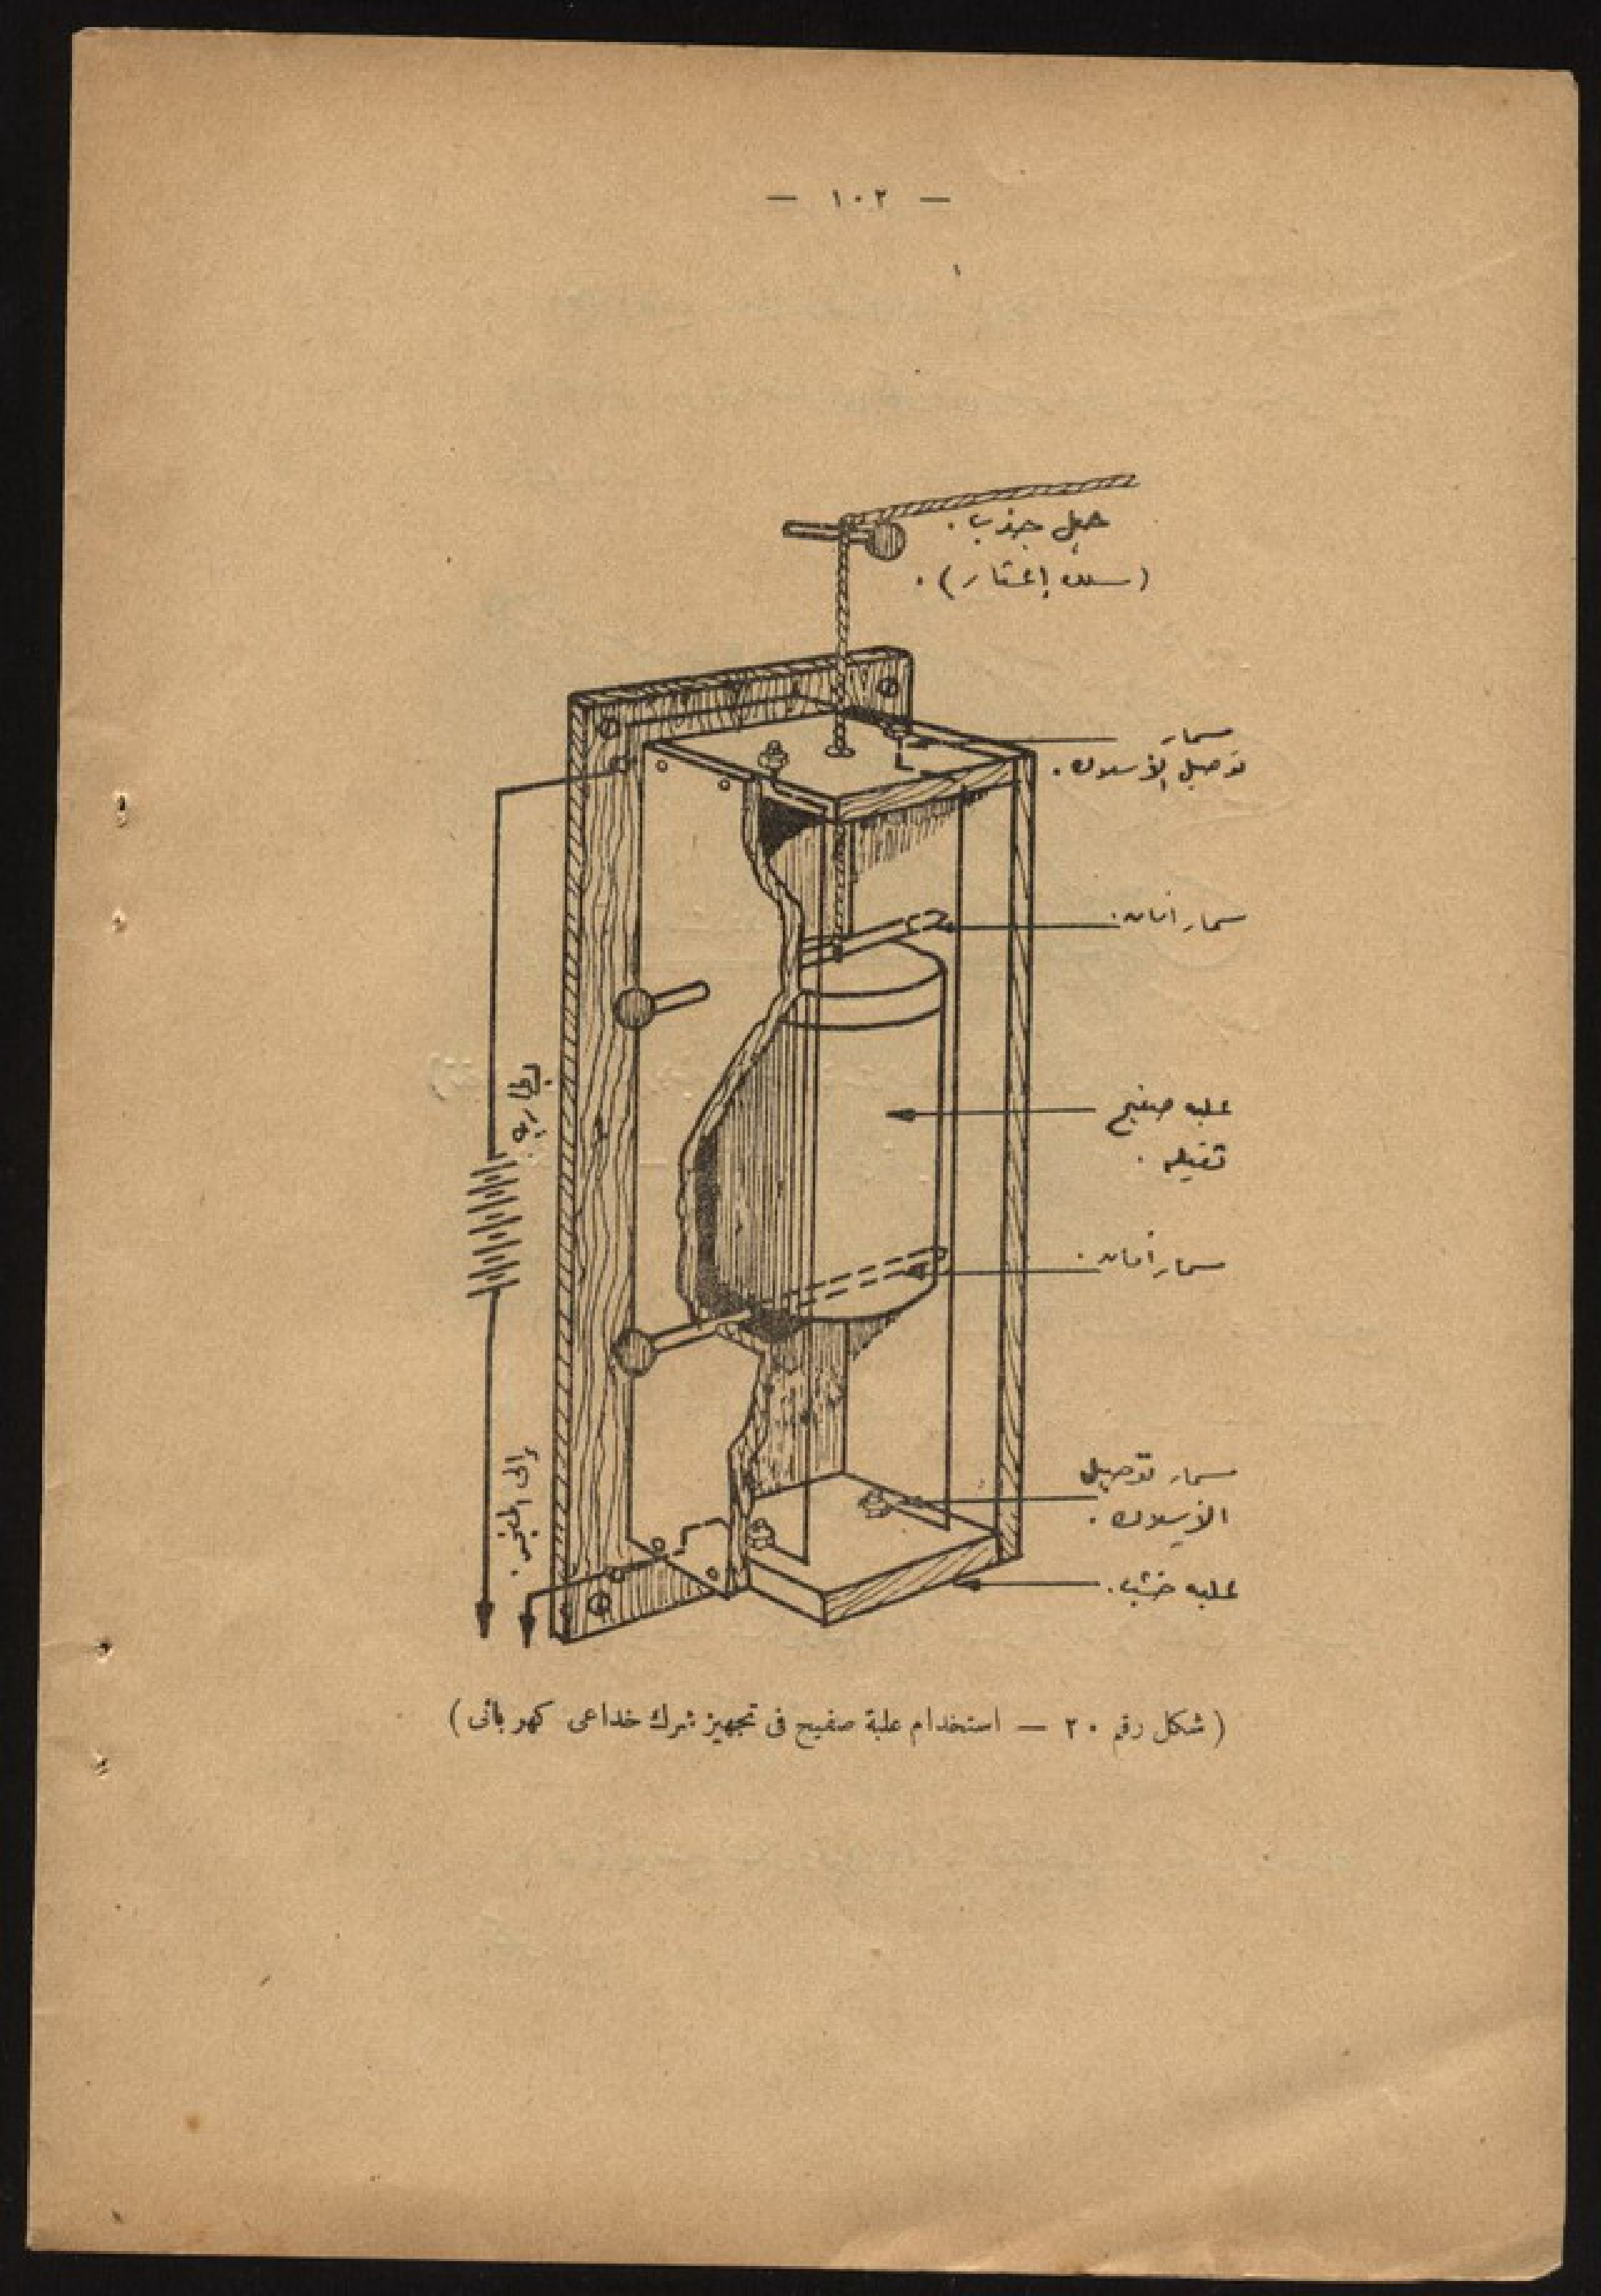 — ١٠٢ —
حبل جذب .
(سلك إعثار) .
مسمار
توصيل الأسلاك .
مسمار أمان .
علبه صفيح
ثقيله .
مسمار أمان .
مسمار توصيل
الأسلاك .
علبه خشب .
بطاريه .
إلى المفجر .
(شكل رقم ٢٠ — استخدام علبة صفيح فى تجهيز شرك خداعى كهربائى)